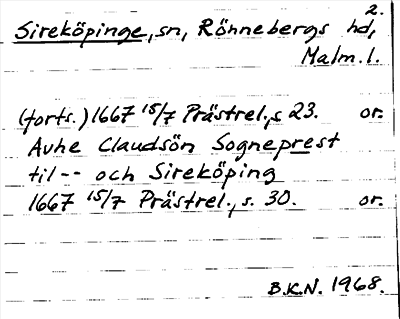 2.
Sireköpinge, sn, Rönnebergs hd,
Malm. l.
(forts.) 1667 15/7 Prästrel., s 23. or.
Auhe Claudsön Sogneprest
til -- och Sireköping
1667 15/7 Prästrel., s. 30. or.
B.K.N. 1968.